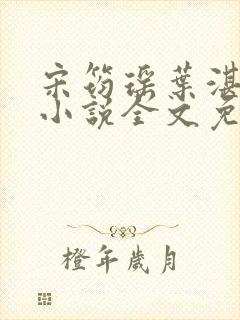 宋筠瑶葉湛
小說全文免
橙年歲月